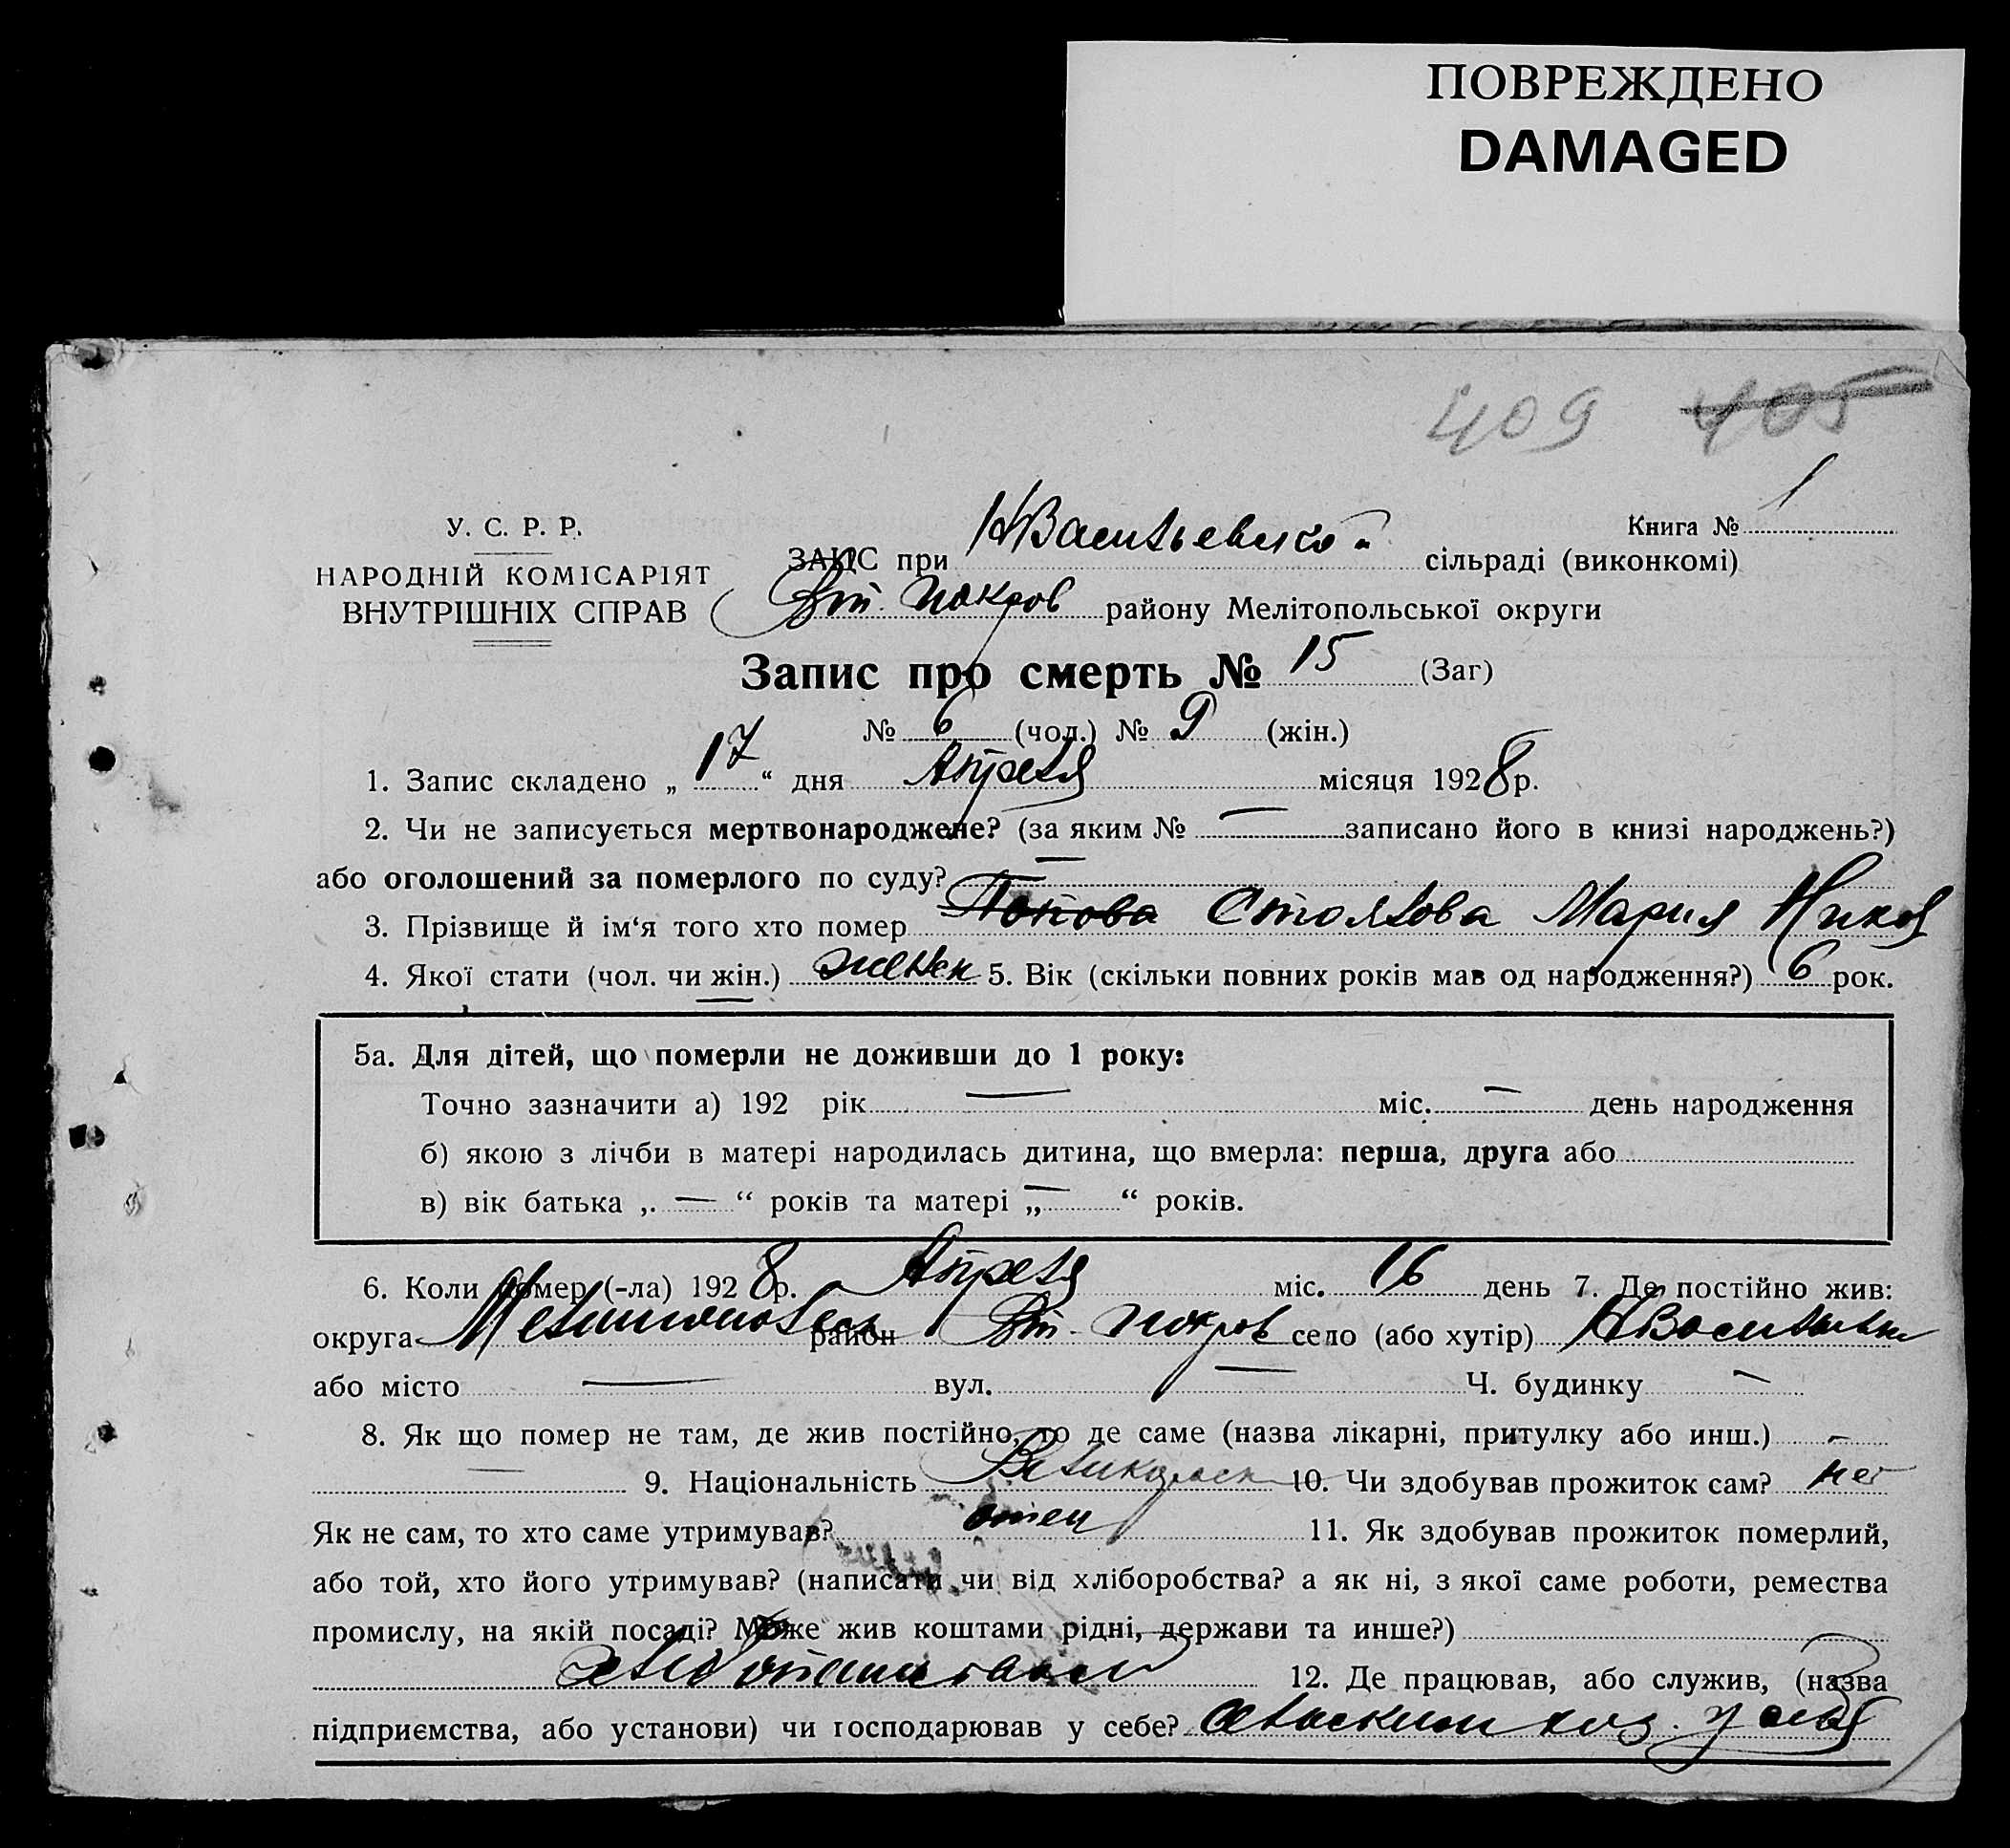 ПОВРЕЖДЕНО
DAMAGED
409 405
У. С. Р. Р.
НАРОДНІЙ КОМІСАРІЯТ
ВНУТРІШНІХ СПРАВ
Книга № 1
ЗАПС при НВасильевской сільраді (виконкомі)
Вт. Покров району Мелітопольської округи
Запис про смерть № 15 (Заг)
№ 6 (чол.) № 9 (жін.)
1. Запис складено „ 17 “ дня Апреля місяця 1928 р.
2. Чи не записується мертвонароджене? (за яким № — записано його в книзі народжень?)
або оголошений за померлого по суду? —
3. Прізвище й ім‘я того хто помер Попова Столяова Мария Никол
4. Якої стати (чол. чи жін.) женск 5. Вік (скільки повних років мав од народження?) 6 рок.
5а. Для дітей, що померли не доживши до 1 року:
Точно зазначити а) 192 рік — міс. — день народження
б) якою з лічби в матері народилась дитина, що вмерла: перша, друга або
в) вік батька „ — “ років та матері „ — “ років.
6. Коли помер (-ла) 1928 р. Апреля міс. 16 день 7. Де постійно жив:
округа Мелитопольск район Вт. Покров село (або хутір) НВасильевка
або місто — вул. — Ч. будинку —
8. Як що помер не там, де жив постійно, то де саме (назва лікарні, притулку або инш.) —
— 9. Національність Великоросск 10. Чи здобував прожиток сам? нет
Як не сам, то хто саме утримував? отец 11. Як здобував прожиток померлий,
або той, хто його утримував? (написати чи від хліборобства? а як ні, з якої саме роботи, ремества
промислу, на якій посаді? Може жив коштами рідні, держави та инше?)
хлебопашеством 12. Де працював, або служив, (назва
підприємства, або установи) чи господарював у себе? сельским хоз. у себя